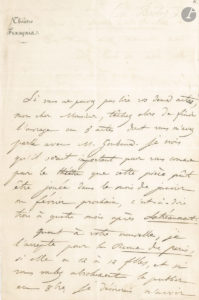 Théâtre
Français
Si vous ne pouvez pas lire vos deux actes,
mon cher Monsieur, tâchez alors de finir
l'ouvrage en 5 actes dont vous m'avez
parlé avec M. Je vois
qu'il serait important pour vous comme
pour le théâtre que cette pièce pût
être jouée dans le mois de janvier
ou février prochain, c'est-à-dire
trois à quatre mois après
Quant à votre nouvelle, je
l'accepte pour la Revue de Paris,
si elle a 10 à 12 flles, et si
vous voulez absolument la publier
en 8bre. Je désirerais n'avoir